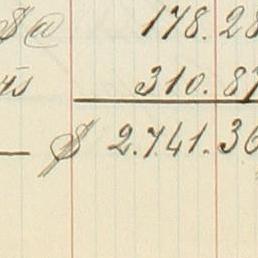 $ @ 178.28
310.87
$ 2.741.36